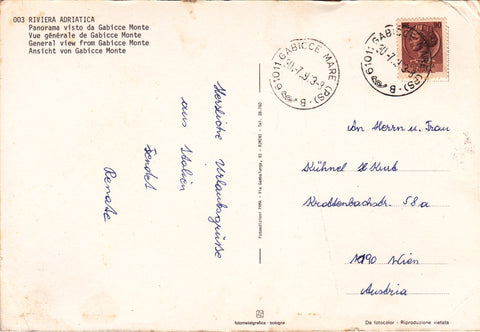 003 RIVIERA ADRIATICA
Panorama visto da Gabicce Monte
Vue générale de Gabicce Monte
General view from Gabicce Monte
Ansicht von Gabicce Monte
61011 GABICCE MARE (PS) - B
61011 GABICCE MARE (PS) - B
90
Herzliche Urlaubsgrüße
aus Italien
sendet
Renate
An Herrn u. Frau
Kühnel Kurt
Krottenbachstr. 58a
1190 Wien
Austria
fotometalgrafica - bologna
Da fotocolor - Riproduzione vietata